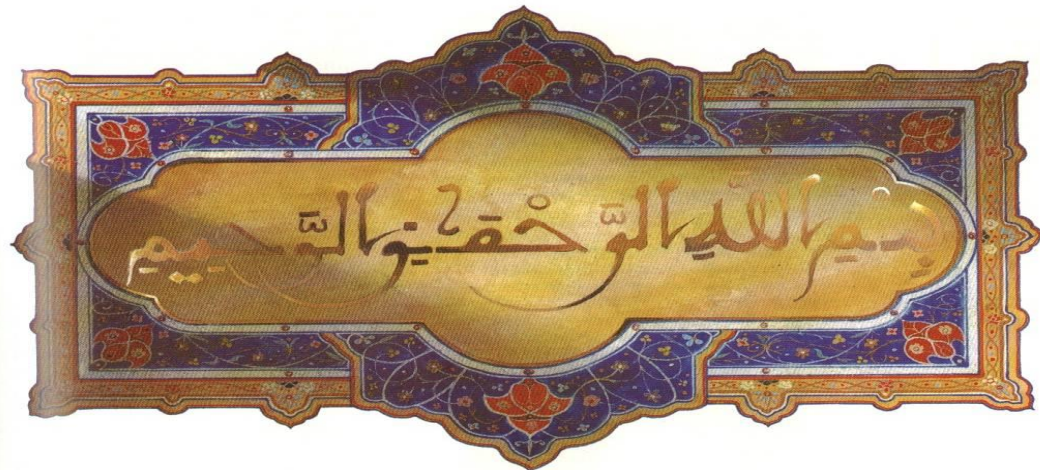 بسم الله الرَّحْمٰن الرَّحيم